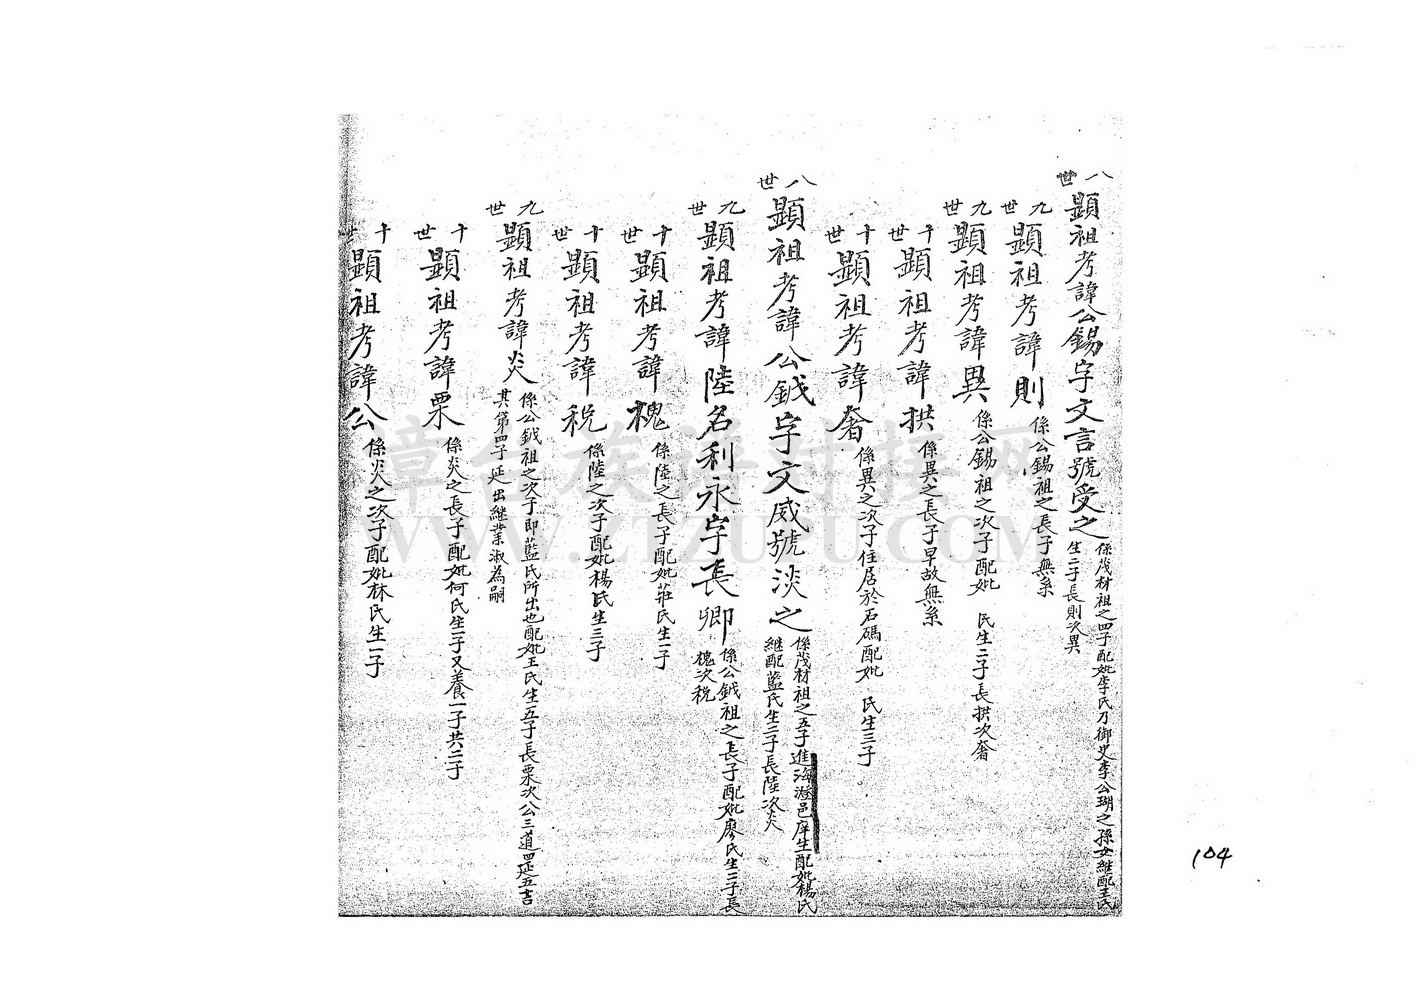 八世
顯祖考諱公錫字文言號受之
係茂材祖之四子配妣李氏乃御史李公瑚之孫女繼配王氏
生二子長則次異
九世
顯祖考諱則
係公錫祖之長子無系
九世
顯祖考諱異
係公錫祖之次子配妣 氏生二子長拱次奢
十世
顯祖考諱拱
係異之長子早故無系
十世
顯祖考諱奢
係異之次子住居於石碼配妣 氏生三子
八世
顯祖考諱公鉞字文威號淡之
係茂材祖之五子進海澄邑庠生配妣楊氏
繼配藍氏生二子長陸次炎
九世
顯祖考諱陸名利永字長卿
係公鉞祖之長子配妣廖氏生二子長
槐次稅
十世
顯祖考諱槐
係陸之長子配妣莊氏生一子
十世
顯祖考諱稅
係陸之次子配妣楊氏生三子
九世
顯祖考諱炎
係公鉞祖之次子即藍氏所出也配妣王氏生五子長栗次公三道四延五吉
其第四子延出繼業淑為嗣
十世
顯祖考諱栗
係炎之長子配妣何氏生一子又養一子共二子
十世
顯祖考諱公
係炎之次子配妣林氏生一子
漳台族谱对接网
WWW.ZTZUPU.COM
104